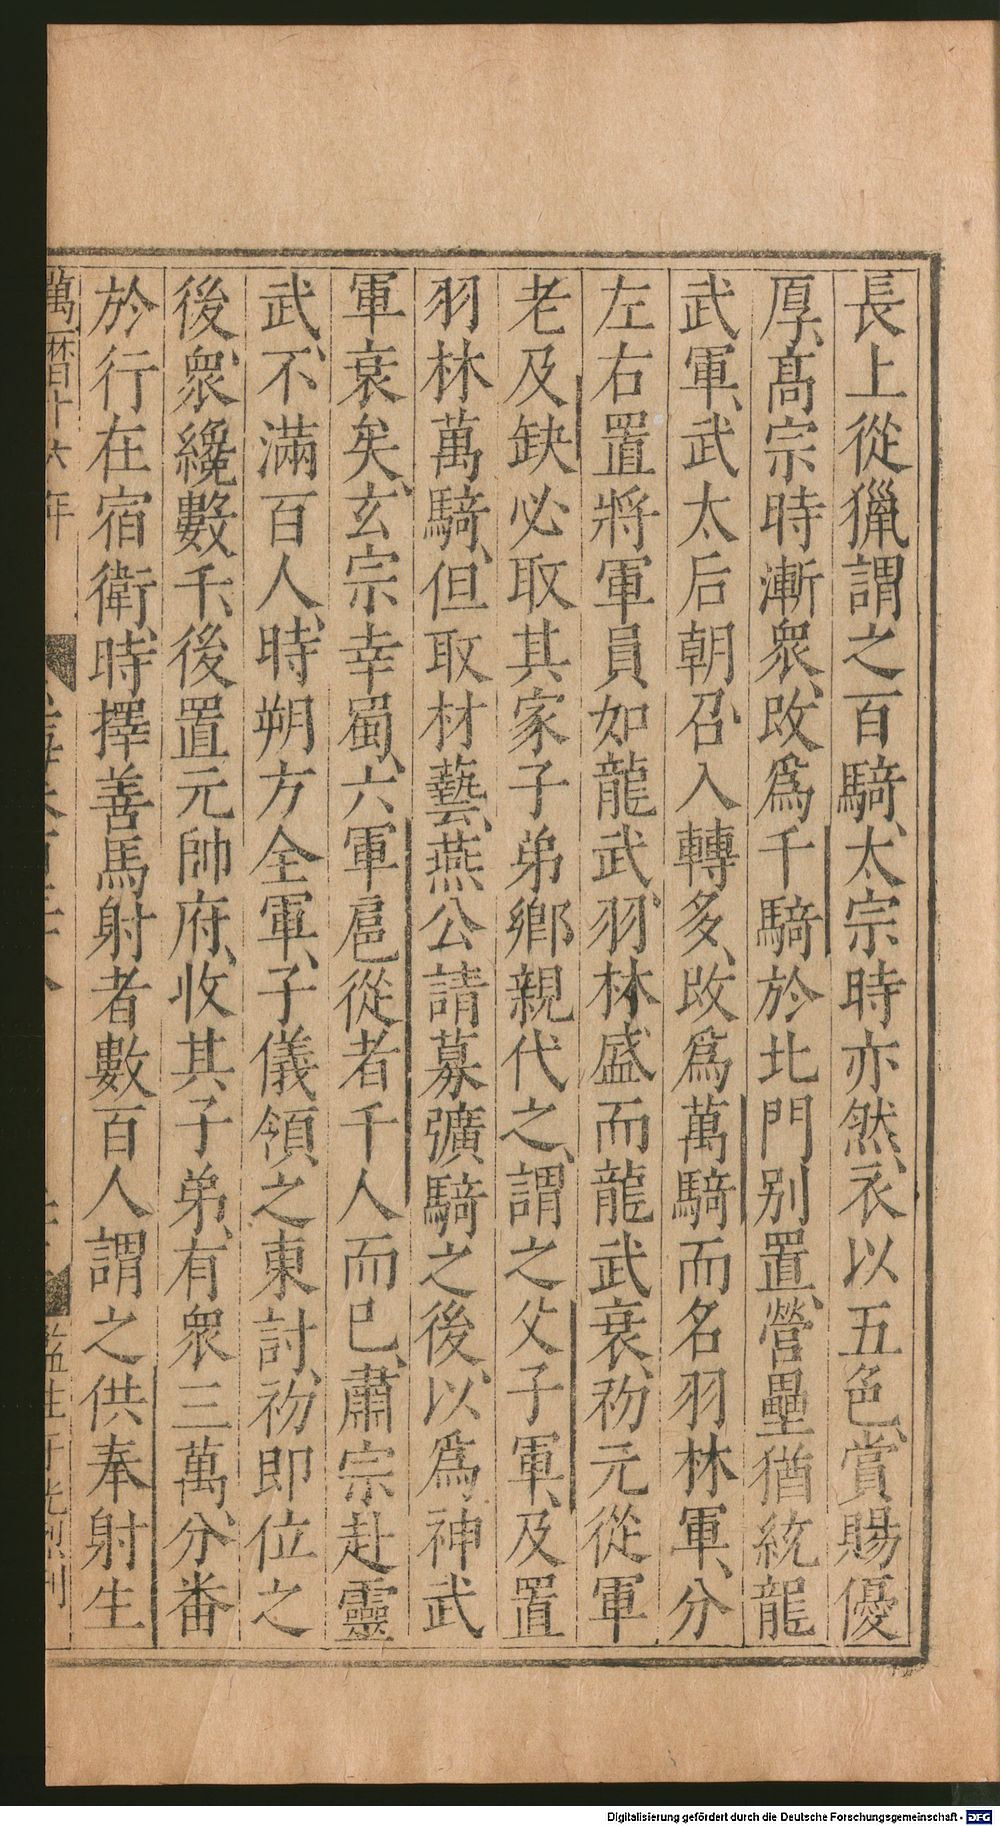 長上從獵謂之百騎、太宗時亦然、衣以五色、賞賜優
厚、髙宗時漸衆、改爲千騎於北門别置、營壘猶統龍
武軍、武太后朝召、入轉多、改爲萬騎而名羽林軍、分
左右置將軍員、如龍武、羽林盛、而龍武衰、礿元從軍
老及缺必取其家子弟鄉親代之、謂之父子軍、及置
羽林萬騎、但取材藝、燕公請募彍騎之後、以爲神武
軍衰矣、玄宗幸蜀、六軍扈從者千人而已、肅宗赴靈
武、不滿百人、時朔方全軍、子儀領之東討、礿即位之
後、衆纔數千、後置元帥府、收其子弟、有衆三萬、分番
於行在宿衛、時擇善馬射者數百人謂之供奉射生
萬曆十六年
監生
刊
Digitalisierung gefördert durch die Deutsche Forschungsgemeinschaft - DFG